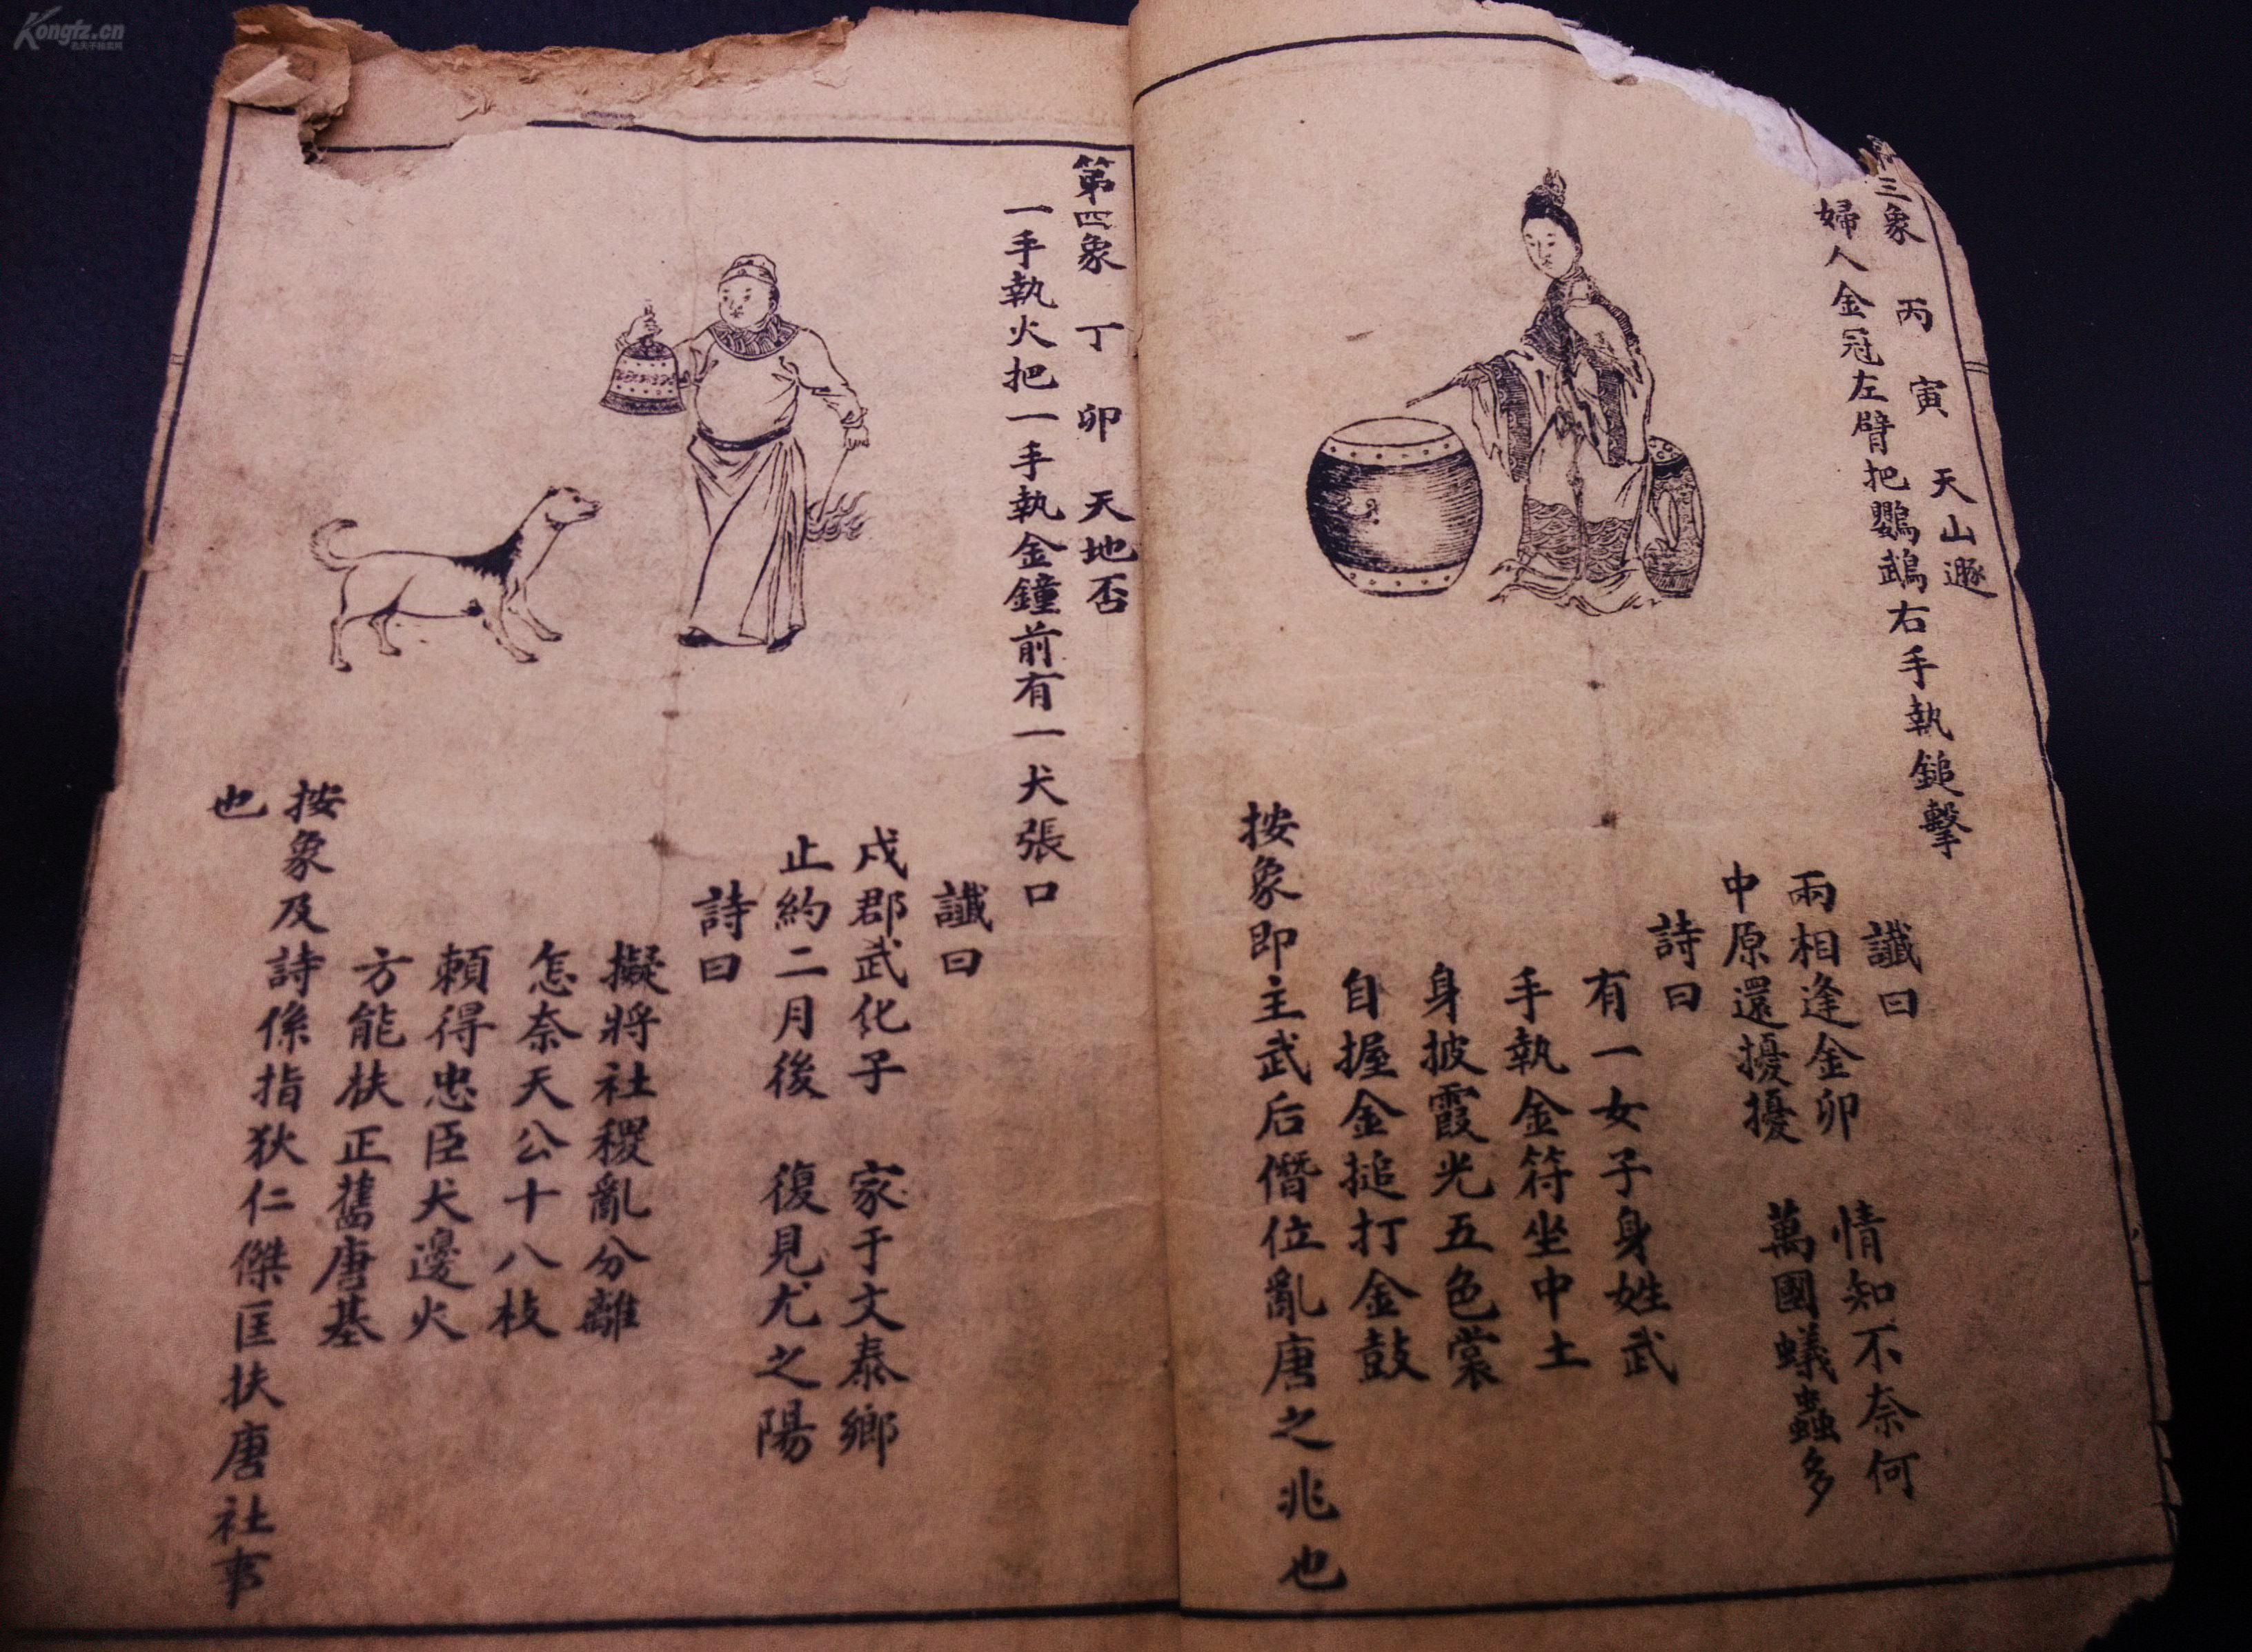 三象　丙　寅　天山遯
婦人金冠左臂把鸚鵡右手執鎚擊
讖曰
兩相逢金卯　情知不奈何
中原還擾擾　萬國蟻蟲多
詩曰
有一女子身姓武
手執金符坐中土
身披霞光五色裳
自握金搥打金鼓
按象即主武后僭位亂唐之兆也
第四象　丁　卯　天地否
一手執火把一手執金鐘前有一犬張口
讖曰
戍郡武化子　家于文泰鄉
止約二月後　復見尤之陽
詩曰
擬將社稷亂分離
怎奈天公十八枝
賴得忠臣犬邊火
方能扶正舊唐基
按象及詩係指狄仁傑匡扶唐社事
也
Kongfz.cn